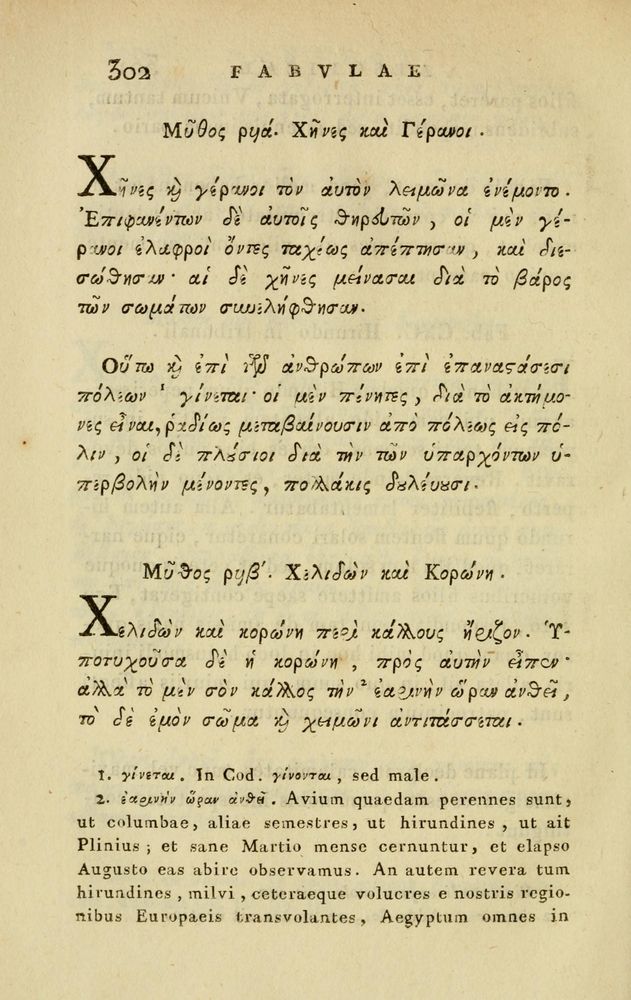 302 FABVLAE
Μῦθος ρμά. Χῆνες καὶ Γέρανοι.
Χῆνες ϗ γέρανοι τὸν ἀυτὸν λειμῶνα ἐνέμοντο.
Ἐπιφανέντων δὲ ἀυτοῖς θηρευτῶν, οἱ μὲν γέ-
ρανοι ἐλαφροὶ ὄντες ταχέως ἀπέπτησαν, καὶ διε-
σώθησαν· αἱ δὲ χῆνες μείνασαι διὰ τὸ βάρος
τῶν σωμάτων συνελήφθησαν.
Οὕτω ϗ ἐπὶ τῶν ἀνθρώπων ἐπὶ ἐπαναϛάσεσι
πόλεων ¹ γίνεται· οἱ μὲν πένητες, διὰ τὸ ἀκτήμο-
νες εἶναι, ῥαδίως μεταβαίνουσιν ἀπὸ πόλεως εἰς πό-
λιν, οἱ δὲ πλούσιοι διὰ τὴν τῶν ὑπαρχόντων ὑ-
περβολὴν μένοντες, πολλάκις δουλέυουσι.
Μῦθος ρμβʹ. Χελιδὼν καὶ Κορώνη.
Χελιδὼν καὶ κορώνη περὶ κάλλους ἤριζον. Ὑ-
ποτυχοῦσα δὲ ἡ κορώνη, πρὸς ἀυτὴν εἶπεν·
ἀλλὰ τὸ μὲν σὸν κάλλος τὴν ² ἐαρινὴν ὥραν ἀνθεῖ,
τὸ δὲ ἐμὸν σῶμα ϗ χειμῶνι ἀντιτάσσεται.
1. γίνεται. In Cod. γίνονται, sed male.
2. ἐαρινὴν ὥραν ἀνθεῖ. Avium quaedam perennes sunt,
ut columbae, aliae semestres, ut hirundines, ut ait
Plinius; et sane Martio mense cernuntur, et elapso
Augusto eas abire observamus. An autem revera tum
hirundines, milvi, ceteraeque volucres e nostris regio-
nibus Europaeis transvolantes, Aegyptum omnes in